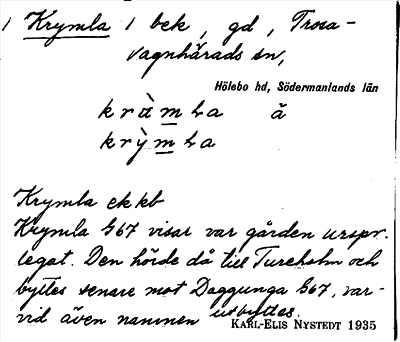 1 Krymla 1 bek, gd, Trosa-
vagnhärads sn,
Hölebo hd, Södermanlands län
kràmla å
krỳmla
Krymla ekkb
Krymla G67 visar var gården urspr.
legat. Den hörde då till Tureholm och
byttes senare mot Daggunga G67, var-
vid även namnen utbyttes.
KARL-ELIS NYSTEDT 1935